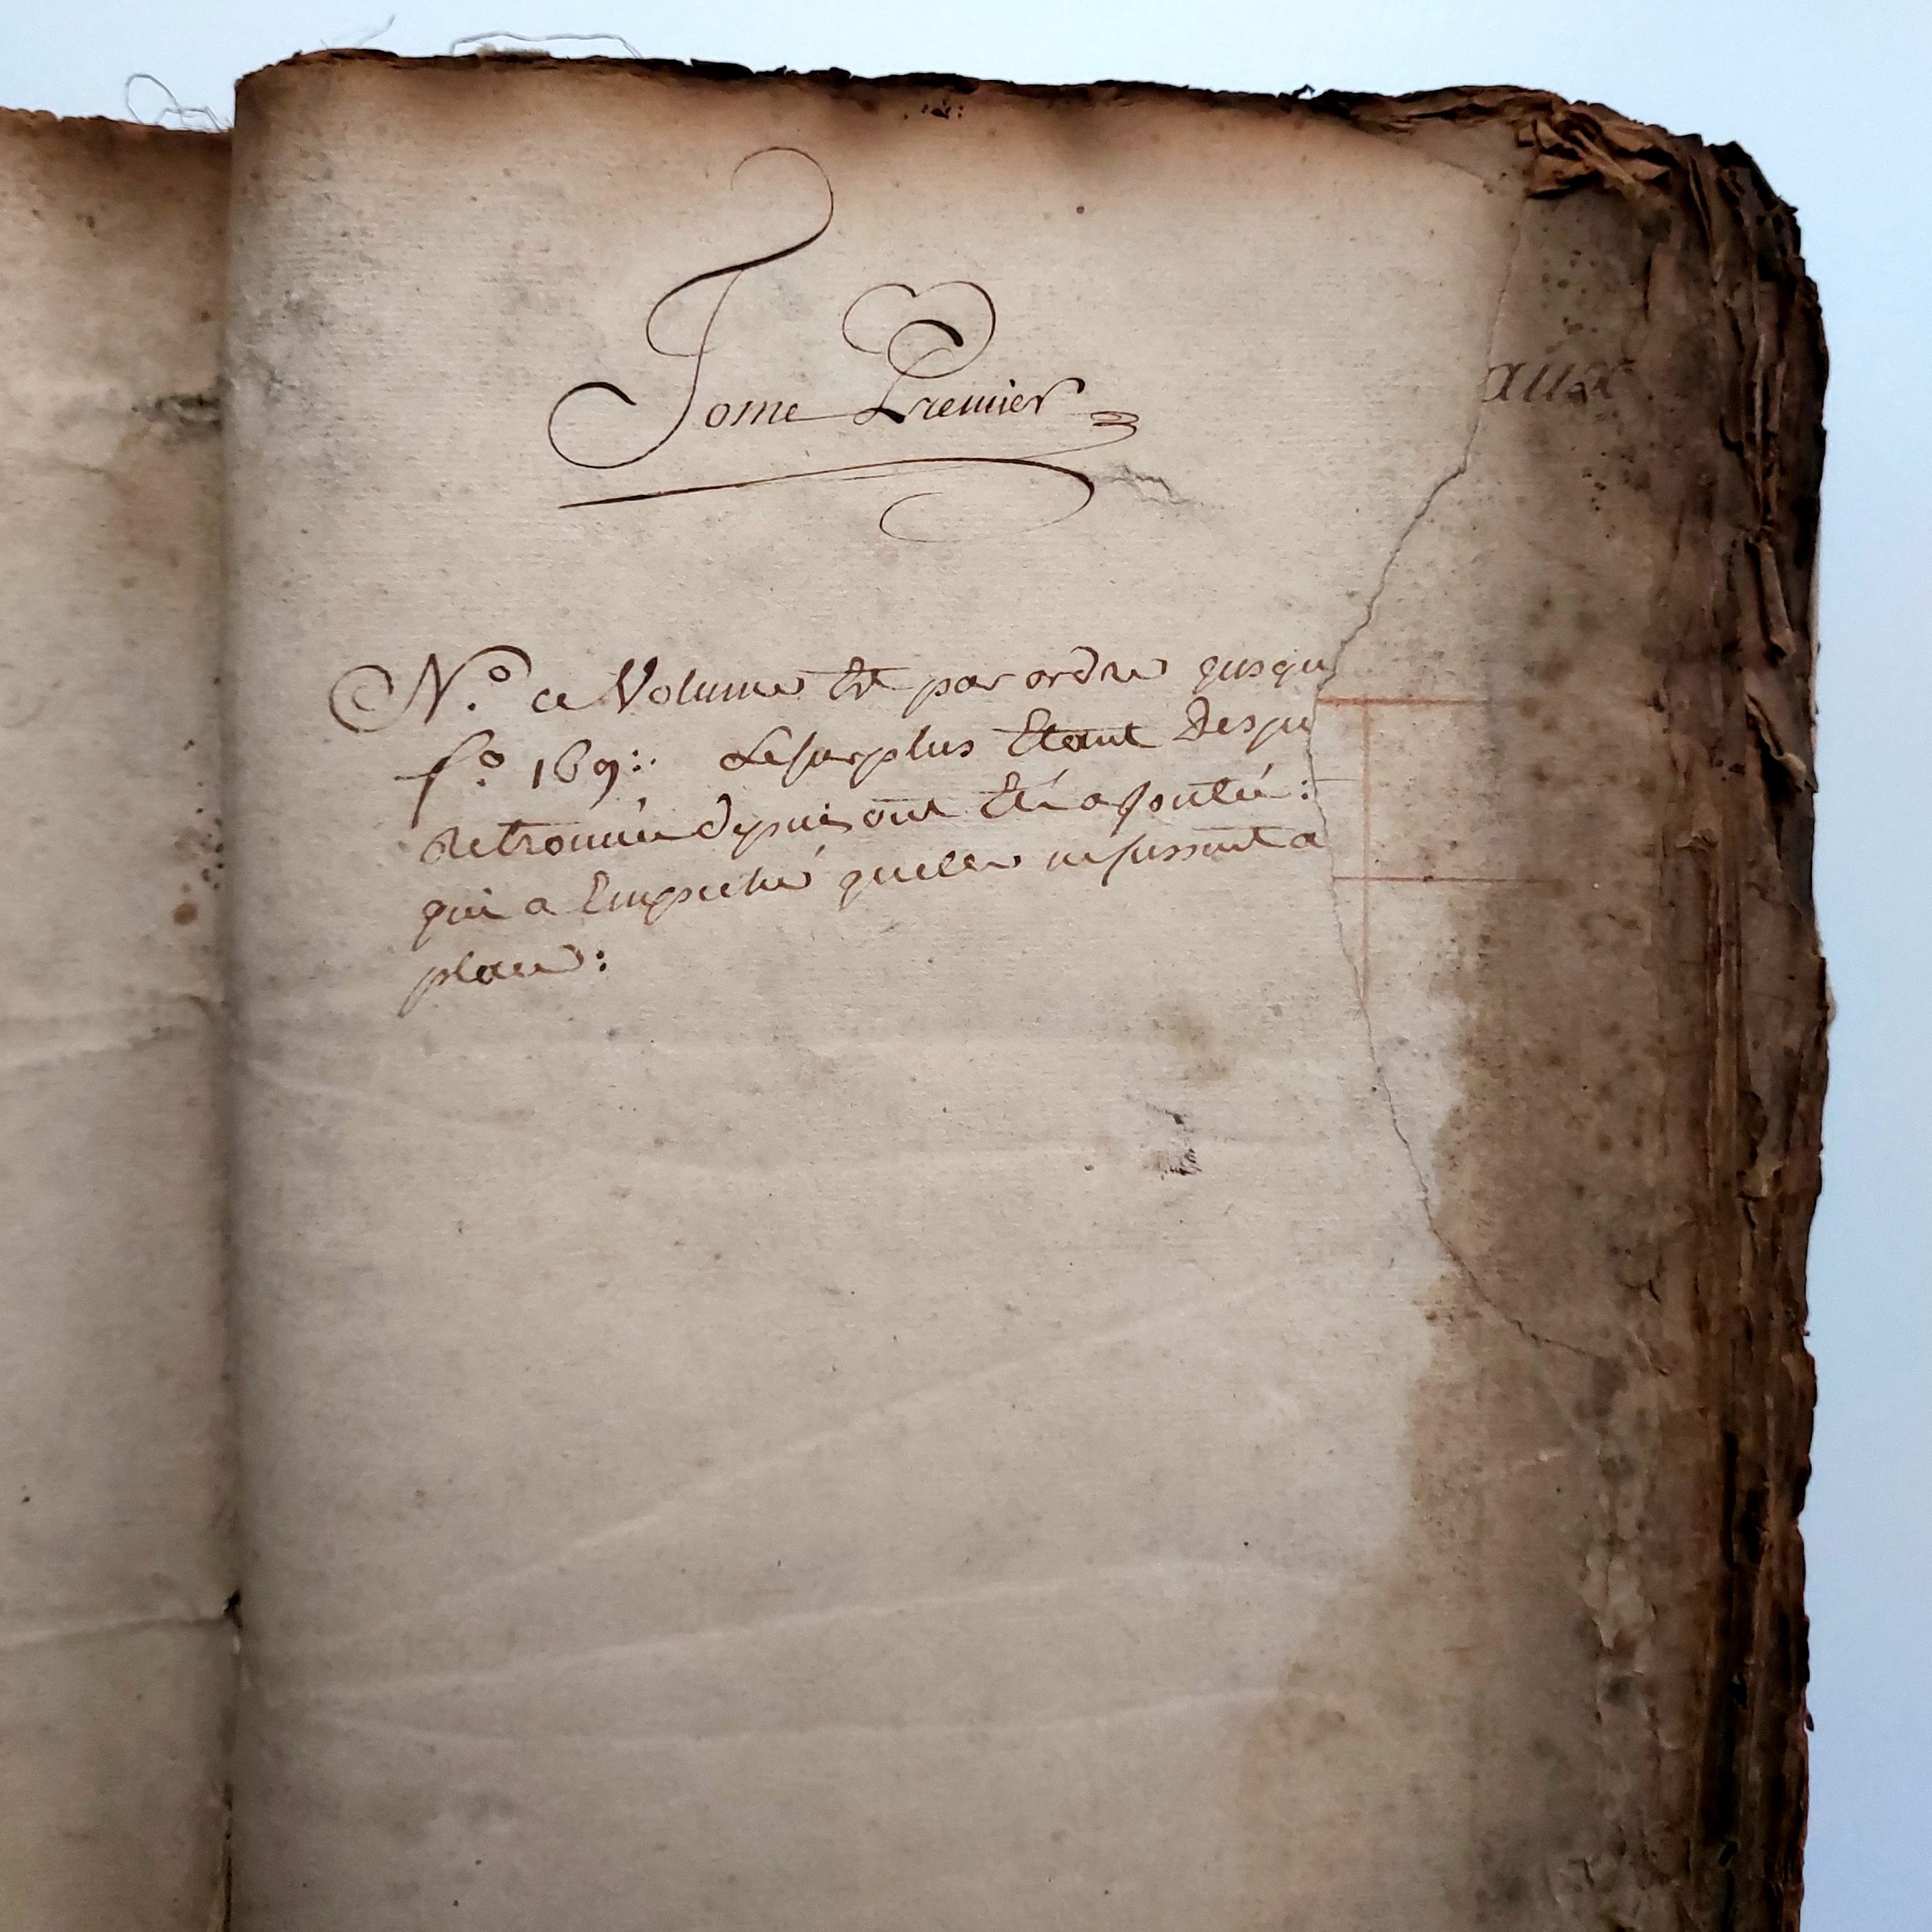 Tome Premier
aux
N.º ce Volume Est par ordre jusqu
fº 169:. Le surplus Etant Des pi
Retrouvée depuis ont Eté ajoutée:
qui a Empeché quelles ne fussent a
place: